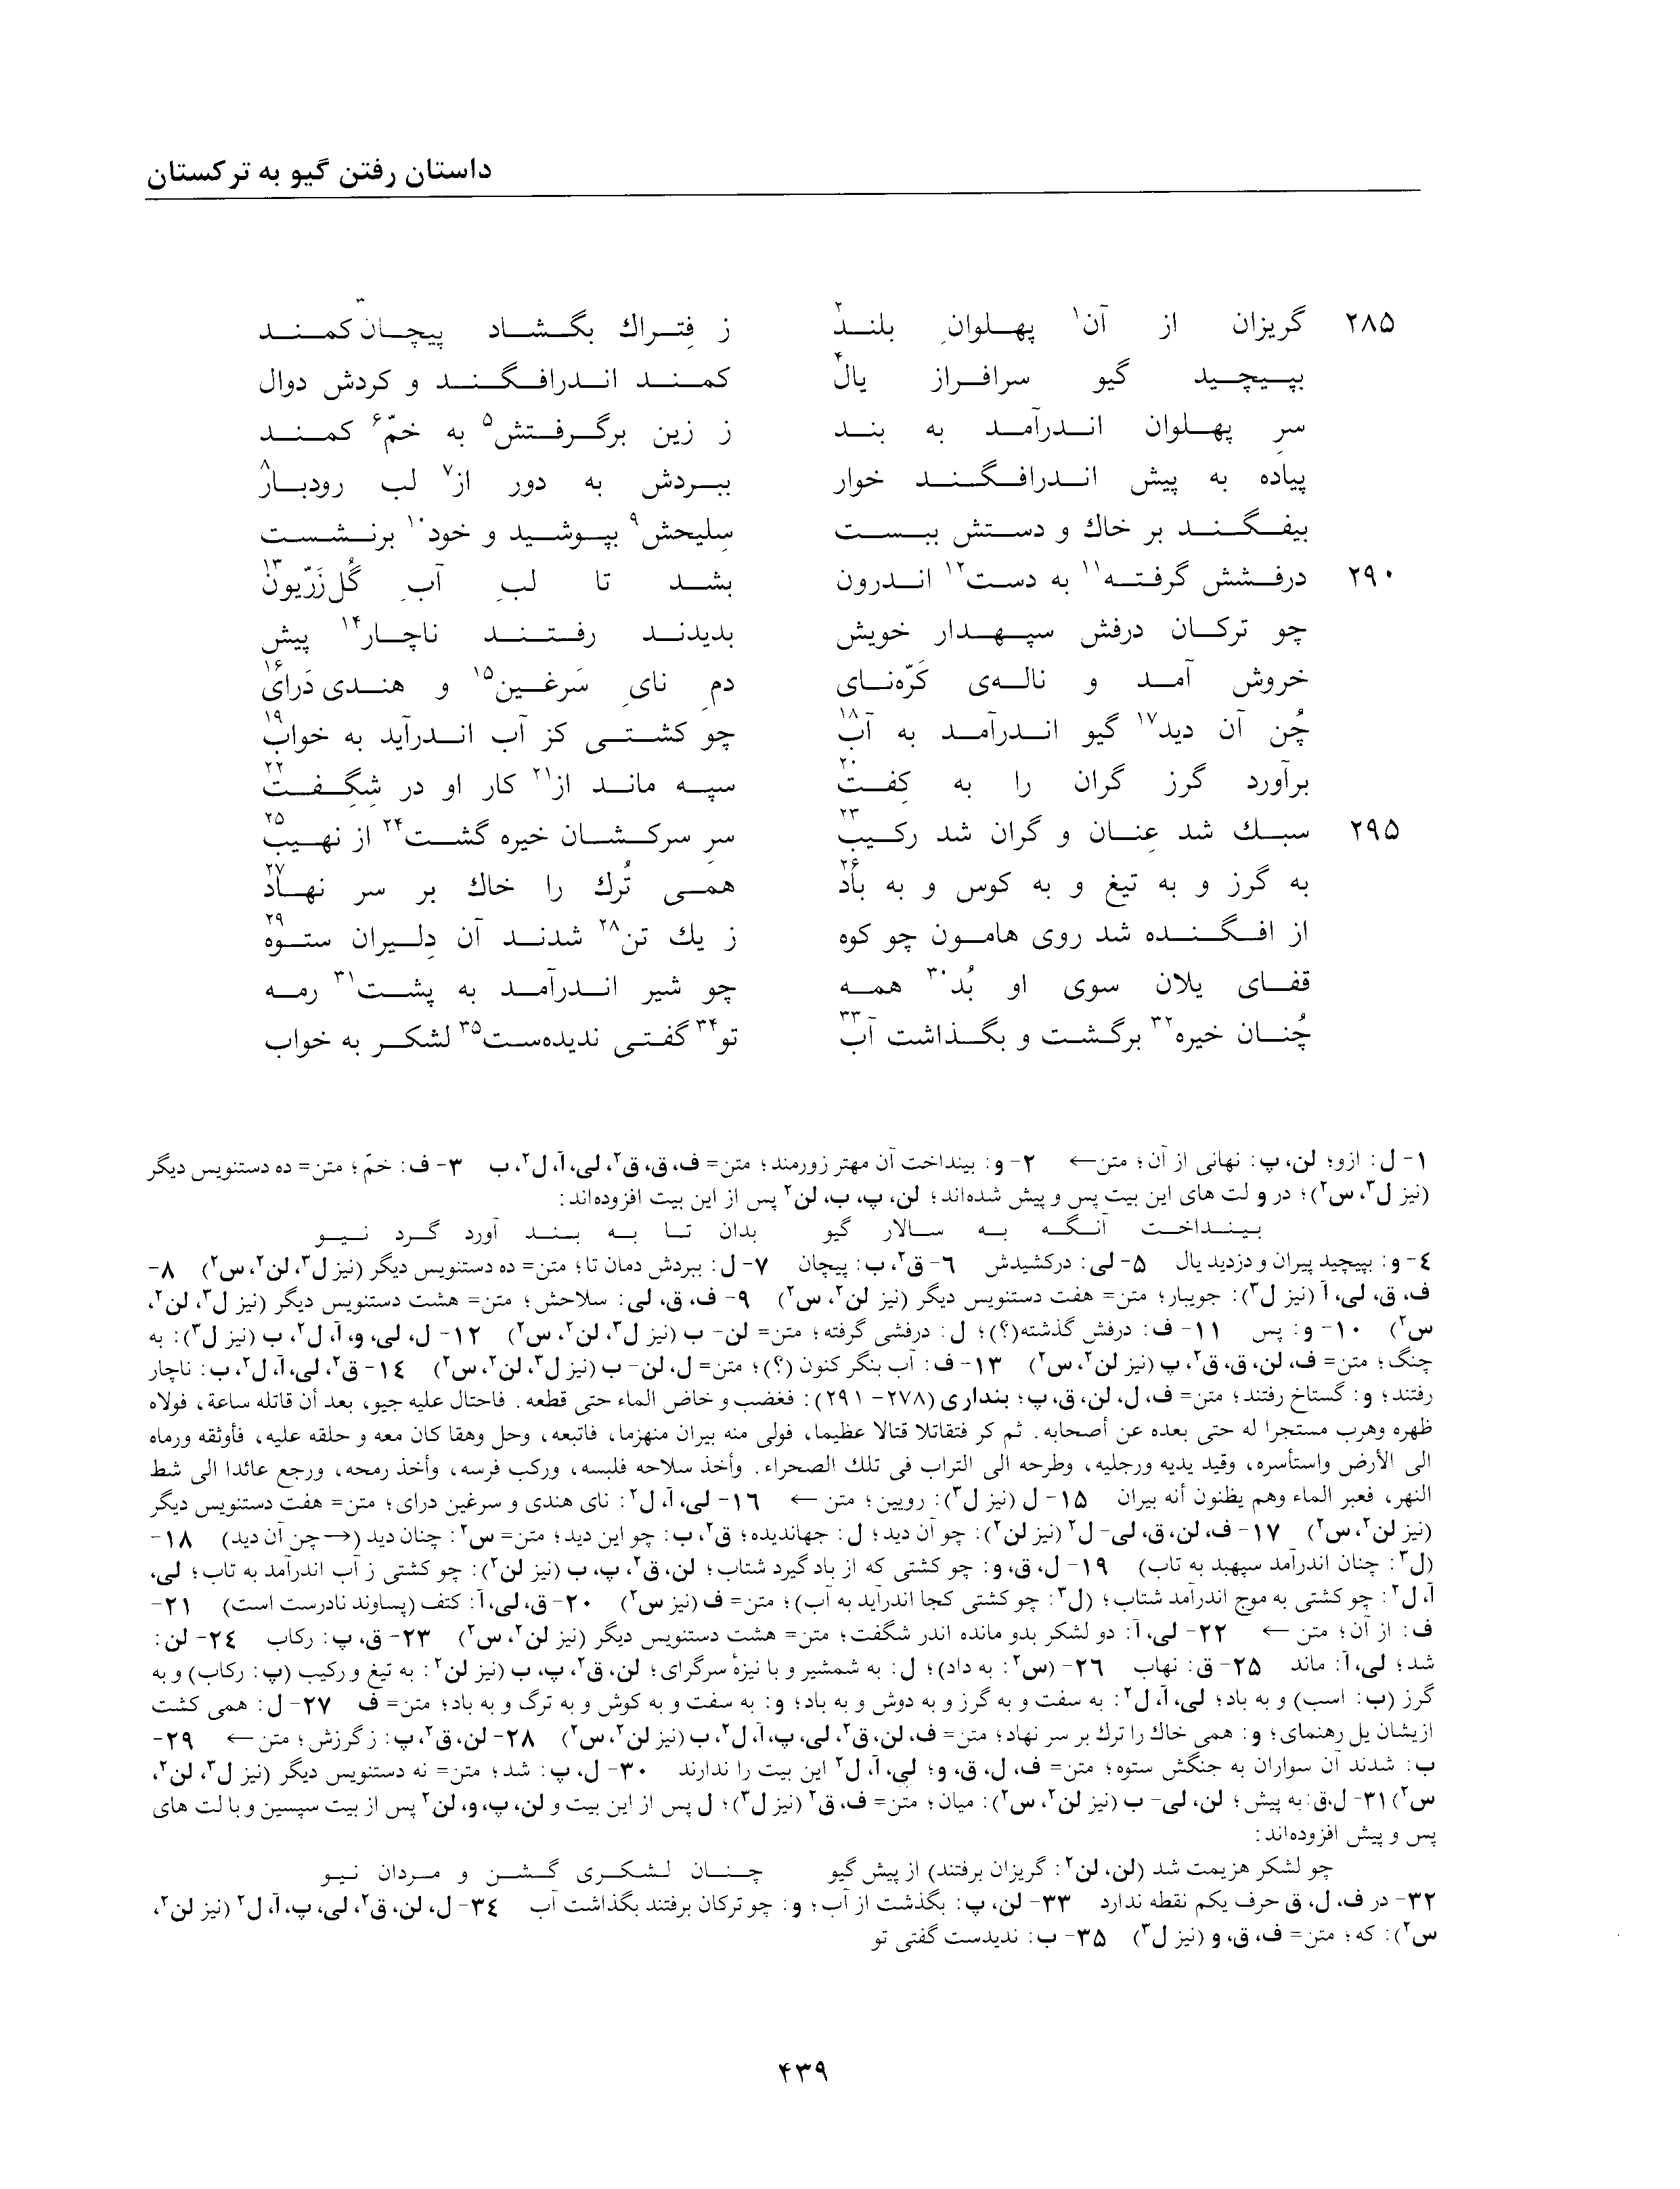 داستان رفتن گیو به ترکستان
۲۸۵ گریزان از آن۱ پهلوانِ بلند۲ ز فِتراك بگشاد پیچان۳ کمند
بپیچید گیو سرافراز یال۴ کمند اندرافگند و کردش دوال
سرِ پهلوان اندرآمد به بند ز زین برگرفتش۵ به خمّ۶ کمند
پیاده به پیش اندرافگند خوار ببردش به دور از۷ لب رودبار۸
بیفگند بر خاك و دستش ببست سِلیحش۹ بپوشید و خود۱۰ برنشست
۲۹۰ درفشش گرفته۱۱ به دست۱۲ اندرون بشد تا لبِ آبِ گُل‌زَرّیون۱۳
چو ترکان درفش سپهدار خویش بدیدند رفتند ناچار۱۴ پیش
خروش آمد و ناله‌ی کَرّه‌نای دمِ نایِ سَرغین۱۵ و هندی دَرای۱۶
چُن آن دید۱۷ گیو اندرآمد به آب۱۸ چو کشتی کز آب اندرآید به خواب۱۹
برآورد گرز گران را به کِفت۲۰ سپه ماند از۲۱ کار او در شِگِفت۲۲
۲۹۵ سبك شد عِنان و گران شد رکیب۲۳ سرِ سرکشان خیره گشت۲۴ از نهیب۲۵
به گرز و به تیغ و به کوس و به باد۲۶ همی تُرك را خاك بر سر نهاد۲۷
از افگنده شد روی هامون چو کوه ز یك تن۲۸ شدند آن دِلیران ستوه۲۹
قفای یلان سوی او بُد۳۰ همه چو شیر اندرآمد به پشت۳۱ رمه
چُنان خیره۳۲ برگشت و بگذاشت آب۳۳ تو۳۴ گفتی ندیده‌ست۳۵ لشکر به خواب
۱- ل: ازو؛ لن، پ: نهانی از آن؛ متن← ۲- و: بینداخت آن مهتر زورمند؛ متن= ف، ق، ق۲، لی، آ، ل۲، ب ۳- ف: خمّ؛ متن= ده دستنویس دیگر
(نیز ل۳، س۲)؛ در و لت های این بیت پس و پیش شده‌اند؛ لن، پ، ب، لن۲ پس از این بیت افزوده‌اند:
بینداخت آنگه به سالار گیو بدان تا به بند آورد گرد نیو
۴- و: بپیچید پیران و دزدید یال ۵- لی: درکشیدش ۶- ق۲، ب: پیچان ۷- ل: ببردش دمان تا؛ متن= ده دستنویس دیگر (نیز ل۳، لن۲، س۲) ۸-
ف، ق، لی، آ (نیز ل۳): جویبار؛ متن= هفت دستنویس دیگر (نیز لن۲، س۲) ۹- ف، ق، لی: سلاحش؛ متن= هشت دستنویس دیگر (نیز ل۳، لن۲،
س۲) ۱۰- و: پس ۱۱- ف: درفش گذشته(؟)؛ ل: درفشی گرفته؛ متن= لن- ب (نیز ل۳، لن۲، س۲) ۱۲- ل، لی، و، آ، ل۲، ب (نیز ل۳): به
چنگ؛ متن= ف، لن، ق، ق۲، پ (نیز لن۲، س۲) ۱۳- ف: آب بنگر کنون (؟)؛ متن= ل، لن- ب (نیز ل۳، لن۲، س۲) ۱۴- ق۲، لی، آ، ل۲، ب: ناچار
رفتند؛ و: گستاخ رفتند؛ متن= ف، ل، لن، ق، پ؛ بنداری (۲۷۸- ۲۹۱): فغضب و خاض الماء حتی قطعه. فاحتال علیه جیو، بعد أن قاتله ساعة، فولاه
ظهره وهرب مستجرا له حتی بعده عن أصحابه. ثم کر فتقاتلا قتالا عظیما، فولی منه بیران منهزما، فاتبعه، وحل وهقا کان معه و حلقه علیه، فأوثقه ورماه
الی الأرض واستأسره، وقید یدیه ورجلیه، وطرحه الی التراب فی تلك الصحراء. وأخذ سلاحه فلبسه، ورکب فرسه، وأخذ رمحه، ورجع عائدا الی شط
النهر، فعبر الماء وهم یظنون أنه بیران ۱۵- ل (نیز ل۳): رویین؛ متن ← ۱۶- لی، آ، ل۲: نای هندی و سرغین درای؛ متن= هفت دستنویس دیگر
(نیز لن۲، س۲) ۱۷- ف، لن، ق، لی- ل۲ (نیز لن۲): چو آن دید؛ ل: جهاندیده؛ ق۲، ب: چو این دید؛ متن= س۲: چنان دید (→چن آن دید) ۱۸-
(ل۳: چنان اندرآمد سپهبد به تاب) ۱۹- ل، ق، و: چو کشتی که از باد گیرد شتاب؛ لن، ق۲، پ، ب (نیز لن۲): چو کشتی ز آب اندرآمد به تاب؛ لی،
آ، ل۲: چو کشتی به موج اندرآمد شتاب؛ (ل۳: چو کشتی کجا اندرآید به آب)؛ متن= ف (نیز س۲) ۲۰- ق، لی، آ: کتف (پساوند نادرست است) ۲۱-
ف: از آن؛ متن ← ۲۲- لی، آ: دو لشکر بدو مانده اندر شگفت؛ متن= هشت دستنویس دیگر (نیز لن۲، س۲) ۲۳- ق، پ: رکاب ۲۴- لن:
شد؛ لی، آ: ماند ۲۵- ق: نهاب ۲۶- (س۲: به داد)؛ ل: به شمشیر و با نیزهٔ سرگرای؛ لن، ق۲، پ، ب (نیز لن۲: به تیغ و رکیب (پ: رکاب) و به
گرز (ب: اسب) و به باد؛ لی، آ، ل۲: به سفت و به گرز و به دوش و به باد؛ و: به سفت و به کوش و به ترگ و به باد؛ متن= ف ۲۷- ل: همی کشت
ازیشان یل رهنمای؛ و: همی خاك را ترك بر سر نهاد؛ متن= ف، لن، ق۲، لی، پ، آ، ل۲، ب (نیز لن۲، س۲) ۲۸- لن، ق۲، پ: ز گرزش؛ متن← ۲۹-
ب: شدند آن سواران به جنگش ستوه؛ متن= ف، ل، ق، و؛ لی، آ، ل۲ این بیت را ندارند ۳۰- ل، پ: شد؛ متن= نه دستنویس دیگر (نیز ل۳، لن۲،
س۲) ۳۱- ل، ق: به پیش؛ لن، لی- ب (نیز لن۲، س۲): میان؛ متن= ف، ق۲ (نیز ل۳)؛ ل پس از این بیت و لن، پ، و، لن۲ پس از بیت سپسین و با لت های
پس و پیش افزوده‌اند:
چو لشکر هزیمت شد (لن، لن۲: گریزان برفتند) از پیش گیو چنان لشکری گشن و مردان نیو
۳۲- در ف، ل، ق حرف یکم نقطه ندارد ۳۳- لن، پ: بگذشت از آب؛ و: چو ترکان برفتند بگذاشت آب ۳۴- ل، لن، ق۲، لی، پ، آ، ل۲ (نیز لن۲،
س۲): که؛ متن= ف، ق، و (نیز ل۳) ۳۵- ب: ندیدست گفتی تو
۴۳۹